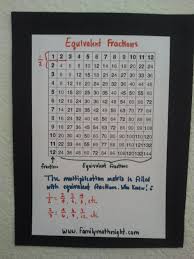 Equivalent Fractions
1 2 3 4 5 6 7 8 9 10 11 12
2 4 6 8 10 12 14 16 18 20 22 24
3 6 9 12 15 18 21 24 27 30 33 36
4 8 12 16 20 24 28 32 36 40 44 48
5 10 15 20 25 30 35 40 45 50 55 60
6 12 18 24 30 36 42 48 54 60 66 72
7 14 21 28 35 42 49 56 63 70 77 84
8 16 24 32 40 48 56 64 72 80 88 96
9 18 27 36 45 54 63 72 81 90 99 108
10 20 30 40 50 60 70 80 90 100 110 120
11 22 33 44 55 66 77 88 99 110 121 132
12 24 36 48 60 72 84 96 108 120 132 144
fraction Equivalent Fractions
The multiplication matrix is filled
with equivalent fractions. Who knew!
1/2 = 2/4, 3/6, 4/8, etc
www.familymathnight.com